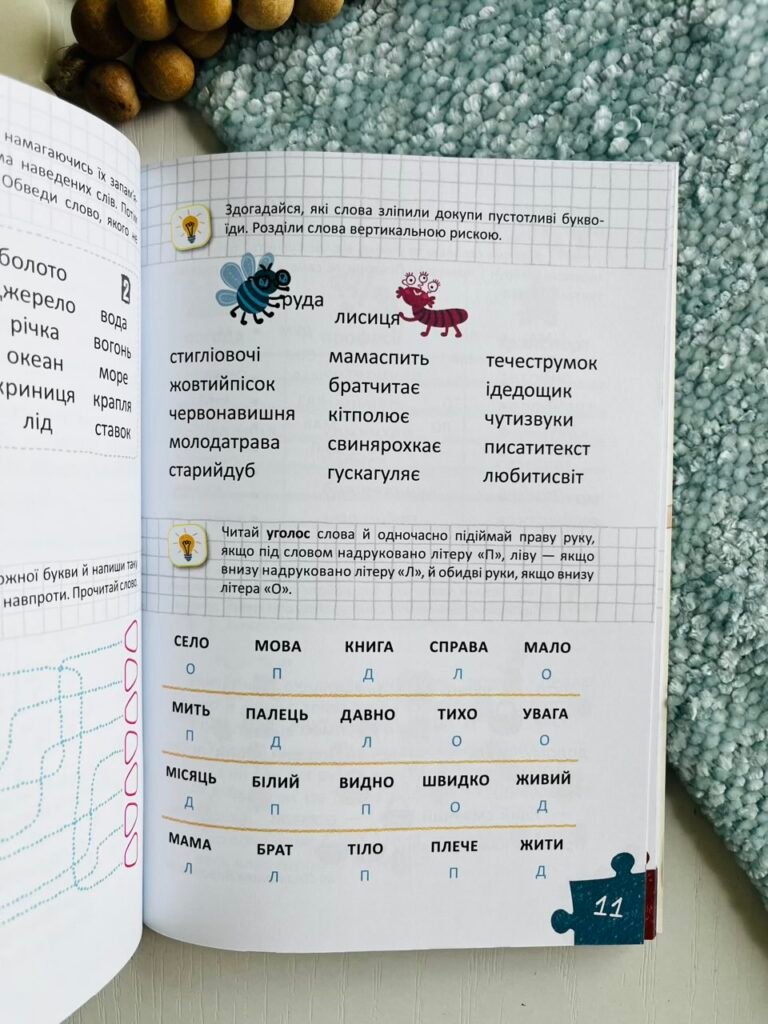 намагаючись їх запам'я-
наведених слів.
Обведи слово, якого не
болото
джерело
річка
океан
криниця
лід
2
вода
вогонь
море
крапля
ставок
букви й напиши таку
навпроти. Прочитай слово.
Здогадайся, які слова зліпили докупи пустотливі букво-
їди. Розділи слова вертикальною рискою.
руда
лисиця
стигліовочі мамаспить течеструмок
жовтийпісок братчитає ідедощик
червонавишня кітполює чутизвуки
молодатрава свинярохкає писатитекст
старийдуб гускагуляє любитисвіт
Читай уголос слова й одночасно підіймай праву руку,
якщо під словом надруковано літеру «П», ліву — якщо
внизу надруковано літеру «Л», й обидві руки, якщо внизу
літера «О».
СЕЛО МОВА КНИГА СПРАВА МАЛО
О П Д Л О
МИТЬ ПАЛЕЦЬ ДАВНО ТИХО УВАГА
П Д Л О О
МІСЯЦЬ БІЛИЙ ВИДНО ШВИДКО ЖИВИЙ
Д П П О Д
МАМА БРАТ ТІЛО ПЛЕЧЕ ЖИТИ
Л Л П П Д
11